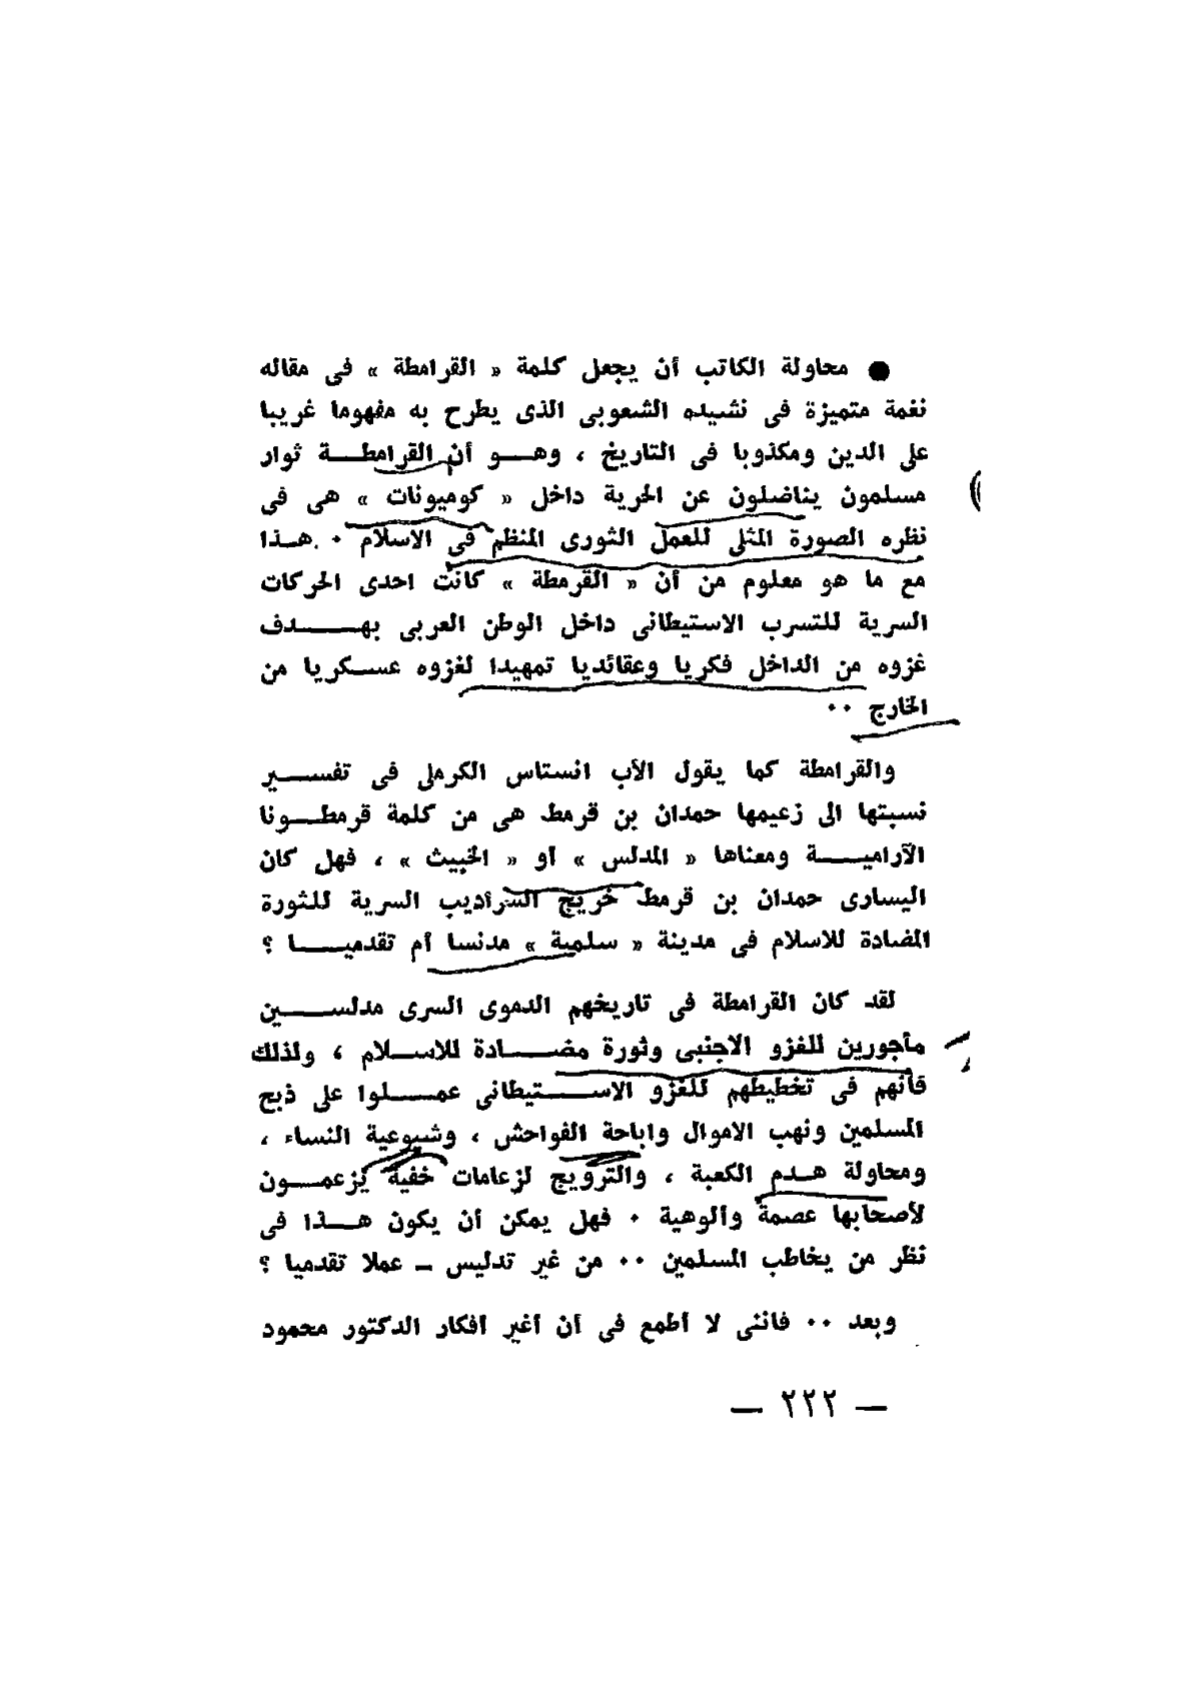 ● محاولة الكاتب أن يجعل كلمة « القرامطة » فى مقاله
نغمة متميزة فى نشيده الشعوبى الذى يطرح به مفهوما غريبا
على الدين ومكذوبا فى التاريخ ، وهو أن القرامطة ثوار
مسلمون يناضلون عن الحرية داخل « كوميونات » هى فى
نظره الصورة المثلى للعمل الثورى المنظم فى الاسلام ٠ هذا
مع ما هو معلوم من أن « القرمطة » كانت احدى الحركات
السرية للتسرب الاستيطانى داخل الوطن العربى بهدف
غزوه من الداخل فكريا وعقائديا تمهيدا لغزوه عسكريا من
الخارج ٠٠
والقرامطة كما يقول الأب انستاس الكرملى فى تفسير
نسبتها الى زعيمها حمدان بن قرمط هى من كلمة قرمطونا
الآرامية ومعناها « المدلس » أو « الخبيث » ، فهل كان
اليسارى حمدان بن قرمط خريج السراديب السرية للثورة
المضادة للاسلام فى مدينة « سلمية » مدنسا أم تقدميا ؟
لقد كان القرامطة فى تاريخهم الدموى السرى مدلسين
مأجورين للغزو الاجنبى وثورة مضادة للاسلام ، ولذلك
فأنهم فى تخطيطهم للغزو الاستيطانى عملوا على ذبح
المسلمين ونهب الاموال واباحة الفواحش ، وشيوعية النساء ،
ومحاولة هدم الكعبة ، والترويج لزعامات خفية يزعمون
لأصحابها عصمة وألوهية ٠ فهل يمكن أن يكون هذا فى
نظر من يخاطب المسلمين ٠٠ من غير تدليس – عملا تقدميا ؟
وبعد ٠٠ فاننى لا أطمع فى أن أغير أفكار الدكتور محمود
– ٢٢٢ –